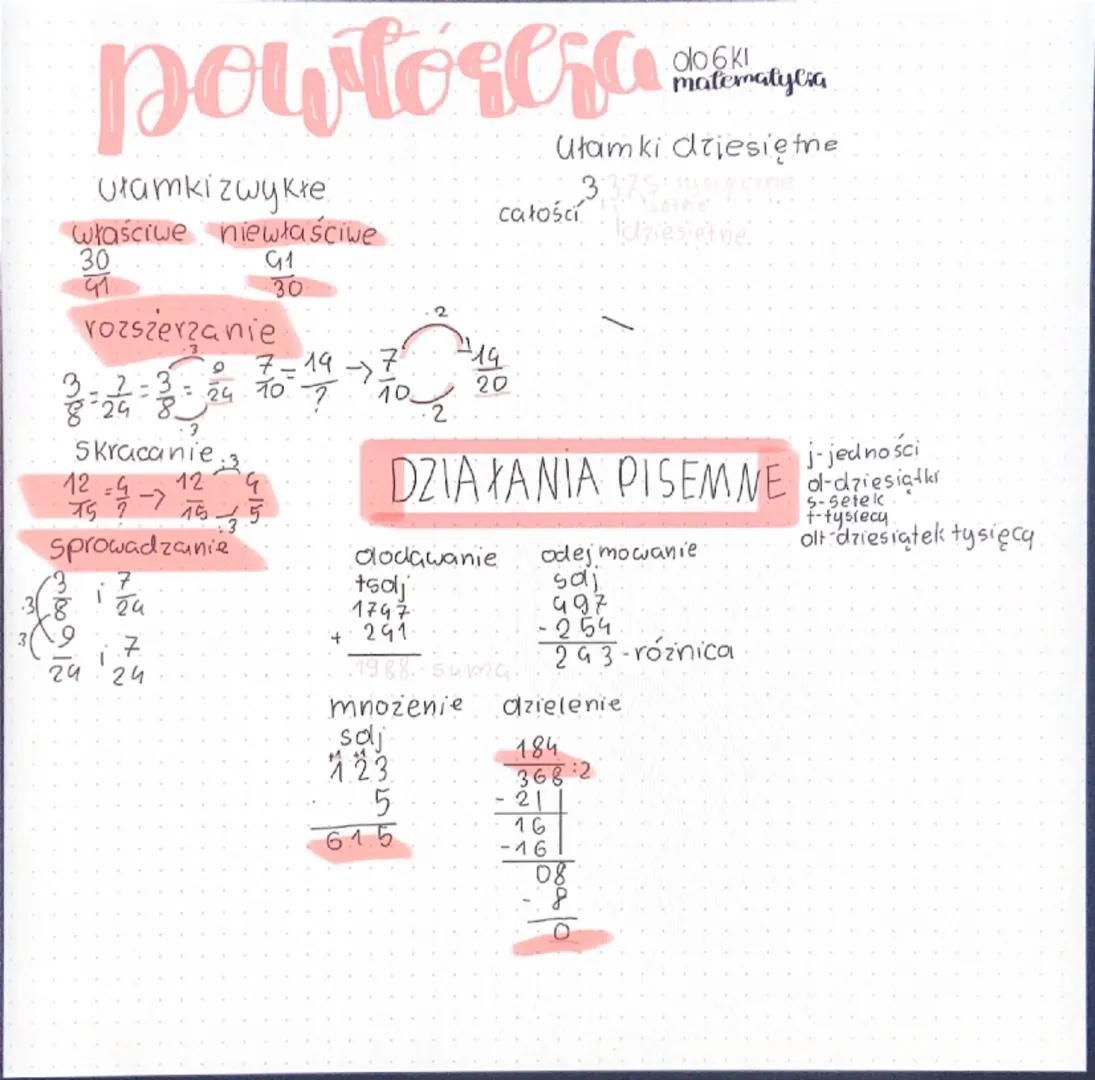 powtórka
do 6 kl
matematyka
Ułamki dziesiętne
3,375 tysięczne
całości
setne
dziesiętne
ułamki zwykłe
właściwe niewłaściwe
30/41 41/30
rozszerzanie
3/8 = ?/24 = 3/8 = 9/24 7/10 = 14/? → 7/10 14/20
·3 ·3 ·2 ·2
skracanie
12/15 = 4/? → 12/15 4/5
:3 :3
sprowadzanie
3/8 i 7/24
·3 ·3
9/24 i 7/24
DZIAŁANIA PISEMNE
j-jedności
d-dziesiątki
s-setek
t-tysięcy
dt-dziesiątek tysięcy
dodawanie
tsdj
1747
+ 241
1988-suma
odejmowanie
sdj
497
- 254
243-różnica
mnożenie
sdj
+1 +1
123
5
615
dzielenie
184
368:2
- 21
16
-16
08
- 8
0